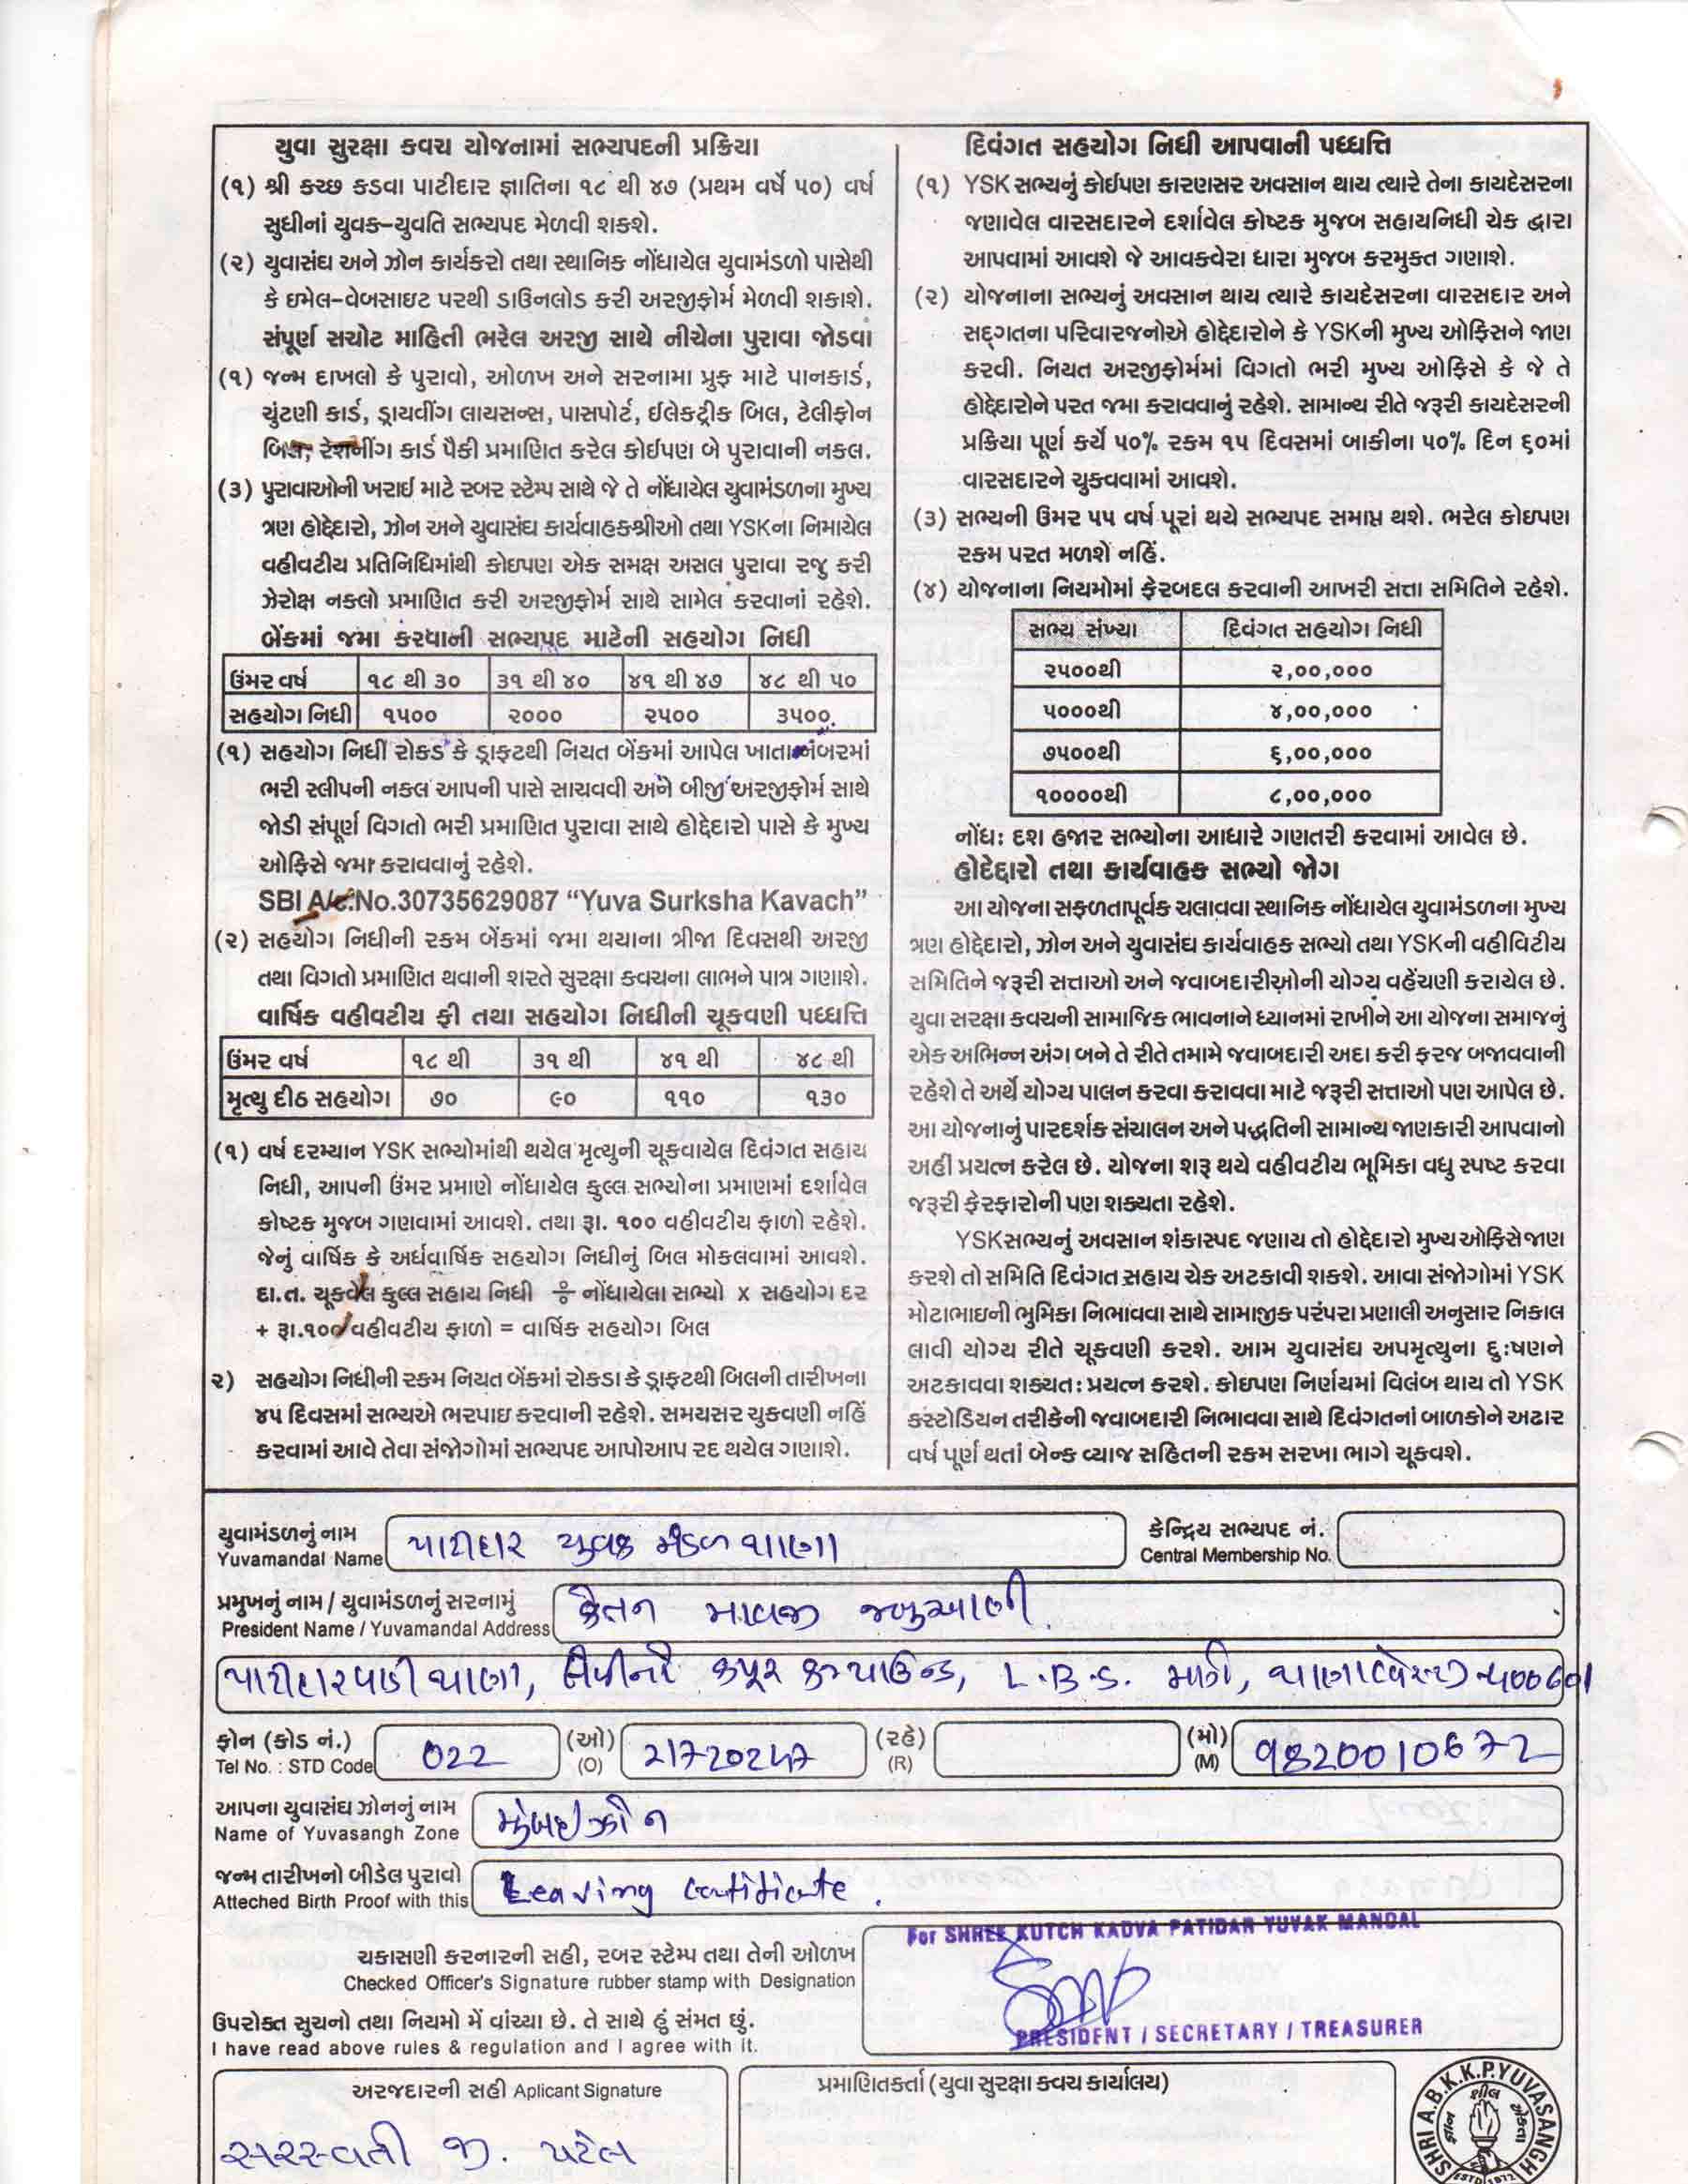 યુવા સુરક્ષા કવચ યોજનામાં સભ્યપદની પ્રક્રિયા
(૧) શ્રી કચ્છ કડવા પાટીદાર જ્ઞાતિના ૧૮ થી ૪૭ (પ્રથમ વર્ષે ૫૦) વર્ષ
સુધીનાં યુવક-યુવતિ સભ્યપદ મેળવી શકશે.
(૨) યુવાસંઘ અને ઝોન કાર્યકરો તથા સ્થાનિક નોંધાયેલ યુવામંડળો પાસેથી
કે ઇમેલ-વેબસાઇટ પરથી ડાઉનલોડ કરી અરજીફોર્મ મેળવી શકાશે.
સંપૂર્ણ સચોટ માહિતી ભરેલ અરજી સાથે નીચેના પુરાવા જોડવા
(૧) જન્મ દાખલો કે પુરાવો, ઓળખ અને સરનામા પ્રુફ માટે પાનકાર્ડ,
ચુંટણી કાર્ડ, ડ્રાયવીંગ લાયસન્સ, પાસપોર્ટ, ઈલેક્ટ્રીક બિલ, ટેલીફોન
બિલ, રેશનીંગ કાર્ડ પૈકી પ્રમાણિત કરેલ કોઈપણ બે પુરાવાની નકલ.
(૩) પુરાવાઓની ખરાઈ માટે રબર સ્ટેમ્પ સાથે જે તે નોંધાયેલ યુવામંડળના મુખ્ય
ત્રણ હોદ્દેદારો, ઝોન અને યુવાસંઘ કાર્યવાહકશ્રીઓ તથા YSKના નિમાયેલ
વહીવટીય પ્રતિનિધિમાંથી કોઇપણ એક સમક્ષ અસલ પુરાવા રજુ કરી
ઝેરોક્ષ નકલો પ્રમાણિત કરી અરજીફોર્મ સાથે સામેલ કરવાનાં રહેશે.
બેંકમાં જમા કરવાની સભ્યપદ માટેની સહયોગ નિધી
ઉંમર વર્ષ ૧૮ થી ૩૦ ૩૧ થી ૪૦ ૪૧ થી ૪૭ ૪૮ થી ૫૦
સહયોગ નિધી ૧૫૦૦ ૨૦૦૦ ૨૫૦૦ ૩૫૦૦
(૧) સહયોગ નિધી રોકડ કે ડ્રાફ્ટથી નિયત બેંકમાં આપેલ ખાતા નંબરમાં
ભરી સ્લીપની નકલ આપની પાસે સાચવવી અને બીજી અરજીફોર્મ સાથે
જોડી સંપૂર્ણ વિગતો ભરી પ્રમાણિત પુરાવા સાથે હોદ્દેદારો પાસે કે મુખ્ય
ઓફિસે જમા કરાવવાનું રહેશે.
SBI A/c.No.30735629087 “Yuva Surksha Kavach”
(૨) સહયોગ નિધીની રકમ બેંકમાં જમા થયાના ત્રીજા દિવસથી અરજી
તથા વિગતો પ્રમાણિત થવાની શરતે સુરક્ષા કવચના લાભને પાત્ર ગણાશે.
વાર્ષિક વહીવટીય ફી તથા સહયોગ નિધીની ચૂકવણી પધ્ધત્તિ
ઉંમર વર્ષ ૧૮ થી ૩૧ થી ૪૧ થી ૪૮ થી
મૃત્યુ દીઠ સહયોગ ૭૦ ૯૦ ૧૧૦ ૧૩૦
(૧) વર્ષ દરમ્યાન YSK સભ્યોમાંથી થયેલ મૃત્યુની ચૂકવાયેલ દિવંગત સહાય
નિધી, આપની ઉંમર પ્રમાણે નોંધાયેલ કુલ્લ સભ્યોના પ્રમાણમાં દર્શાવેલ
કોષ્ટક મુજબ ગણવામાં આવશે. તથા રૂા. ૧૦૦ વહીવટીય ફાળો રહેશે.
જેનું વાર્ષિક કે અર્ધવાર્ષિક સહયોગ નિધીનું બિલ મોકલવામાં આવશે.
દા.ત. ચૂકવેલ કુલ્લ સહાય નિધી ÷ નોંધાયેલા સભ્યો x સહયોગ દર
+ રૂા.૧૦૦ વહીવટીય ફાળો = વાર્ષિક સહયોગ બિલ
૨) સહયોગ નિધીની રકમ નિયત બેંકમાં રોકડા કે ડ્રાફ્ટથી બિલની તારીખના
૪૫ દિવસમાં સભ્યએ ભરપાઇ કરવાની રહેશે. સમયસર ચુકવણી નહિં
કરવામાં આવે તેવા સંજોગોમાં સભ્યપદ આપોઆપ રદ થયેલ ગણાશે.
દિવંગત સહયોગ નિધી આપવાની પધ્ધત્તિ
(૧) YSK સભ્યનું કોઈપણ કારણસર અવસાન થાય ત્યારે તેના કાયદેસરના
જણાવેલ વારસદારને દર્શાવેલ કોષ્ટક મુજબ સહાયનિધી ચેક દ્વારા
આપવામાં આવશે જે આવકવેરા ધારા મુજબ કરમુક્ત ગણાશે.
(૨) યોજનાના સભ્યનું અવસાન થાય ત્યારે કાયદેસરના વારસદાર અને
સદ્ગતના પરિવારજનોએ હોદ્દેદારોને કે YSKની મુખ્ય ઓફિસને જાણ
કરવી. નિયત અરજીફોર્મમાં વિગતો ભરી મુખ્ય ઓફિસે કે જે તે
હોદ્દેદારોને પરત જમા કરાવવાનું રહેશે. સામાન્ય રીતે જરૂરી કાયદેસરની
પ્રક્રિયા પૂર્ણ કર્યે ૫૦% રકમ ૧૫ દિવસમાં બાકીના ૫૦% દિન ૬૦માં
વારસદારને ચુકવવામાં આવશે.
(૩) સભ્યની ઉમર ૫૫ વર્ષ પૂરાં થયે સભ્યપદ સમાપ્ત થશે. ભરેલ કોઇપણ
રકમ પરત મળશે નહિં.
(૪) યોજનાના નિયમોમાં ફેરબદલ કરવાની આખરી સત્તા સમિતિને રહેશે.
સભ્ય સંખ્યા દિવંગત સહયોગ નિધી
૨૫૦૦થી ૨,૦૦,૦૦૦
૫૦૦૦થી ૪,૦૦,૦૦૦
૭૫૦૦થી ૬,૦૦,૦૦૦
૧૦૦૦૦થી ૮,૦૦,૦૦૦
નોંધઃ દશ હજાર સભ્યોના આધારે ગણતરી કરવામાં આવેલ છે.
હોદેદારો તથા કાર્યવાહક સભ્યો જોગ
આ યોજના સફળતાપૂર્વક ચલાવવા સ્થાનિક નોંધાયેલ યુવામંડળના મુખ્ય
ત્રણ હોદ્દેદારો, ઝોન અને યુવાસંઘ કાર્યવાહક સભ્યો તથા YSKની વહીવિટીય
સમિતિને જરૂરી સત્તાઓ અને જવાબદારીઓની યોગ્ય વહેંચણી કરાયેલ છે.
યુવા સરક્ષા કવચની સામાજિક ભાવનાને ધ્યાનમાં રાખીને આ યોજના સમાજનું
એક અભિન્ન અંગ બને તે રીતે તમામે જવાબદારી અદા કરી ફરજ બજાવવાની
રહેશે તે અર્થે યોગ્ય પાલન કરવા કરાવવા માટે જરૂરી સત્તાઓ પણ આપેલ છે.
આ યોજનાનું પારદર્શક સંચાલન અને પદ્ધતિની સામાન્ય જાણકારી આપવાનો
અહીં પ્રયત્ન કરેલ છે. યોજના શરૂ થયે વહીવટીય ભૂમિકા વધુ સ્પષ્ટ કરવા
જરૂરી ફેરફારોની પણ શક્યતા રહેશે.
YSKસભ્યનું અવસાન શંકાસ્પદ જણાય તો હોદ્દેદારો મુખ્ય ઓફિસે જાણ
કરશે તો સમિતિ દિવંગત સહાય ચેક અટકાવી શકશે. આવા સંજોગોમાં YSK
મોટાભાઇની ભુમિકા નિભાવવા સાથે સામાજીક પરંપરા પ્રણાલી અનુસાર નિકાલ
લાવી યોગ્ય રીતે ચૂકવણી કરશે. આમ યુવાસંઘ અપમૃત્યુના દુઃષણને
અટકાવવા શક્યતઃ પ્રયત્ન કરશે. કોઇપણ નિર્ણયમાં વિલંબ થાય તો YSK
કસ્ટોડિયન તરીકેની જવાબદારી નિભાવવા સાથે દિવંગતનાં બાળકોને અઢાર
વર્ષ પૂર્ણ થતાં બેન્ક વ્યાજ સહિતની રકમ સરખા ભાગે ચૂકવશે.
યુવામંડળનું નામ પાટીદાર યુવક મંડળ થાણા કેન્દ્રિય સભ્યપદ નં.
Yuvamandal Name Central Membership No.
પ્રમુખનું નામ / યુવામંડળનું સરનામું કેતન માવજી જબુઆણી
President Name / Yuvamandal Address
પાટીદારવાડી થાણા, કપૂર કમ્પાઉન્ડ, L.B.S. માર્ગ, થાણા(વેસ્ટ) ૪૦૦૬૦૧
ફોન (કોડ નં.) 022 (ઓ) 21720247 (રહે) (મો) 9820010672
Tel No. : STD Code (O) (R) (M)
આપના યુવાસંઘ ઝોનનું નામ મુંબઇ ઝોન
Name of Yuvasangh Zone
જન્મ તારીખનો બીડેલ પુરાવો Leaving Certificate.
Atteched Birth Proof with this
For SHREE KUTCH KADVA PATIDAR YUVAK MANDAL
ચકાસણી કરનારની સહી, રબર સ્ટેમ્પ તથા તેની ઓળખ
Checked Officer's Signature rubber stamp with Designation
ઉપરોક્ત સુચનો તથા નિયમો મેં વાંચ્યા છે. તે સાથે હું સંમત છું.
PRESIDENT / SECRETARY / TREASURER
I have read above rules & regulation and I agree with it.
અરજદારની સહી Aplicant Signature
પ્રમાણિતકર્તા (યુવા સુરક્ષા કવચ કાર્યાલય)
સરસ્વતી જી. પટેલ
SHRI A.B.K.K.P.YUVASANGH
શીલ
જ્ઞાન એકતા
ESTD.1972